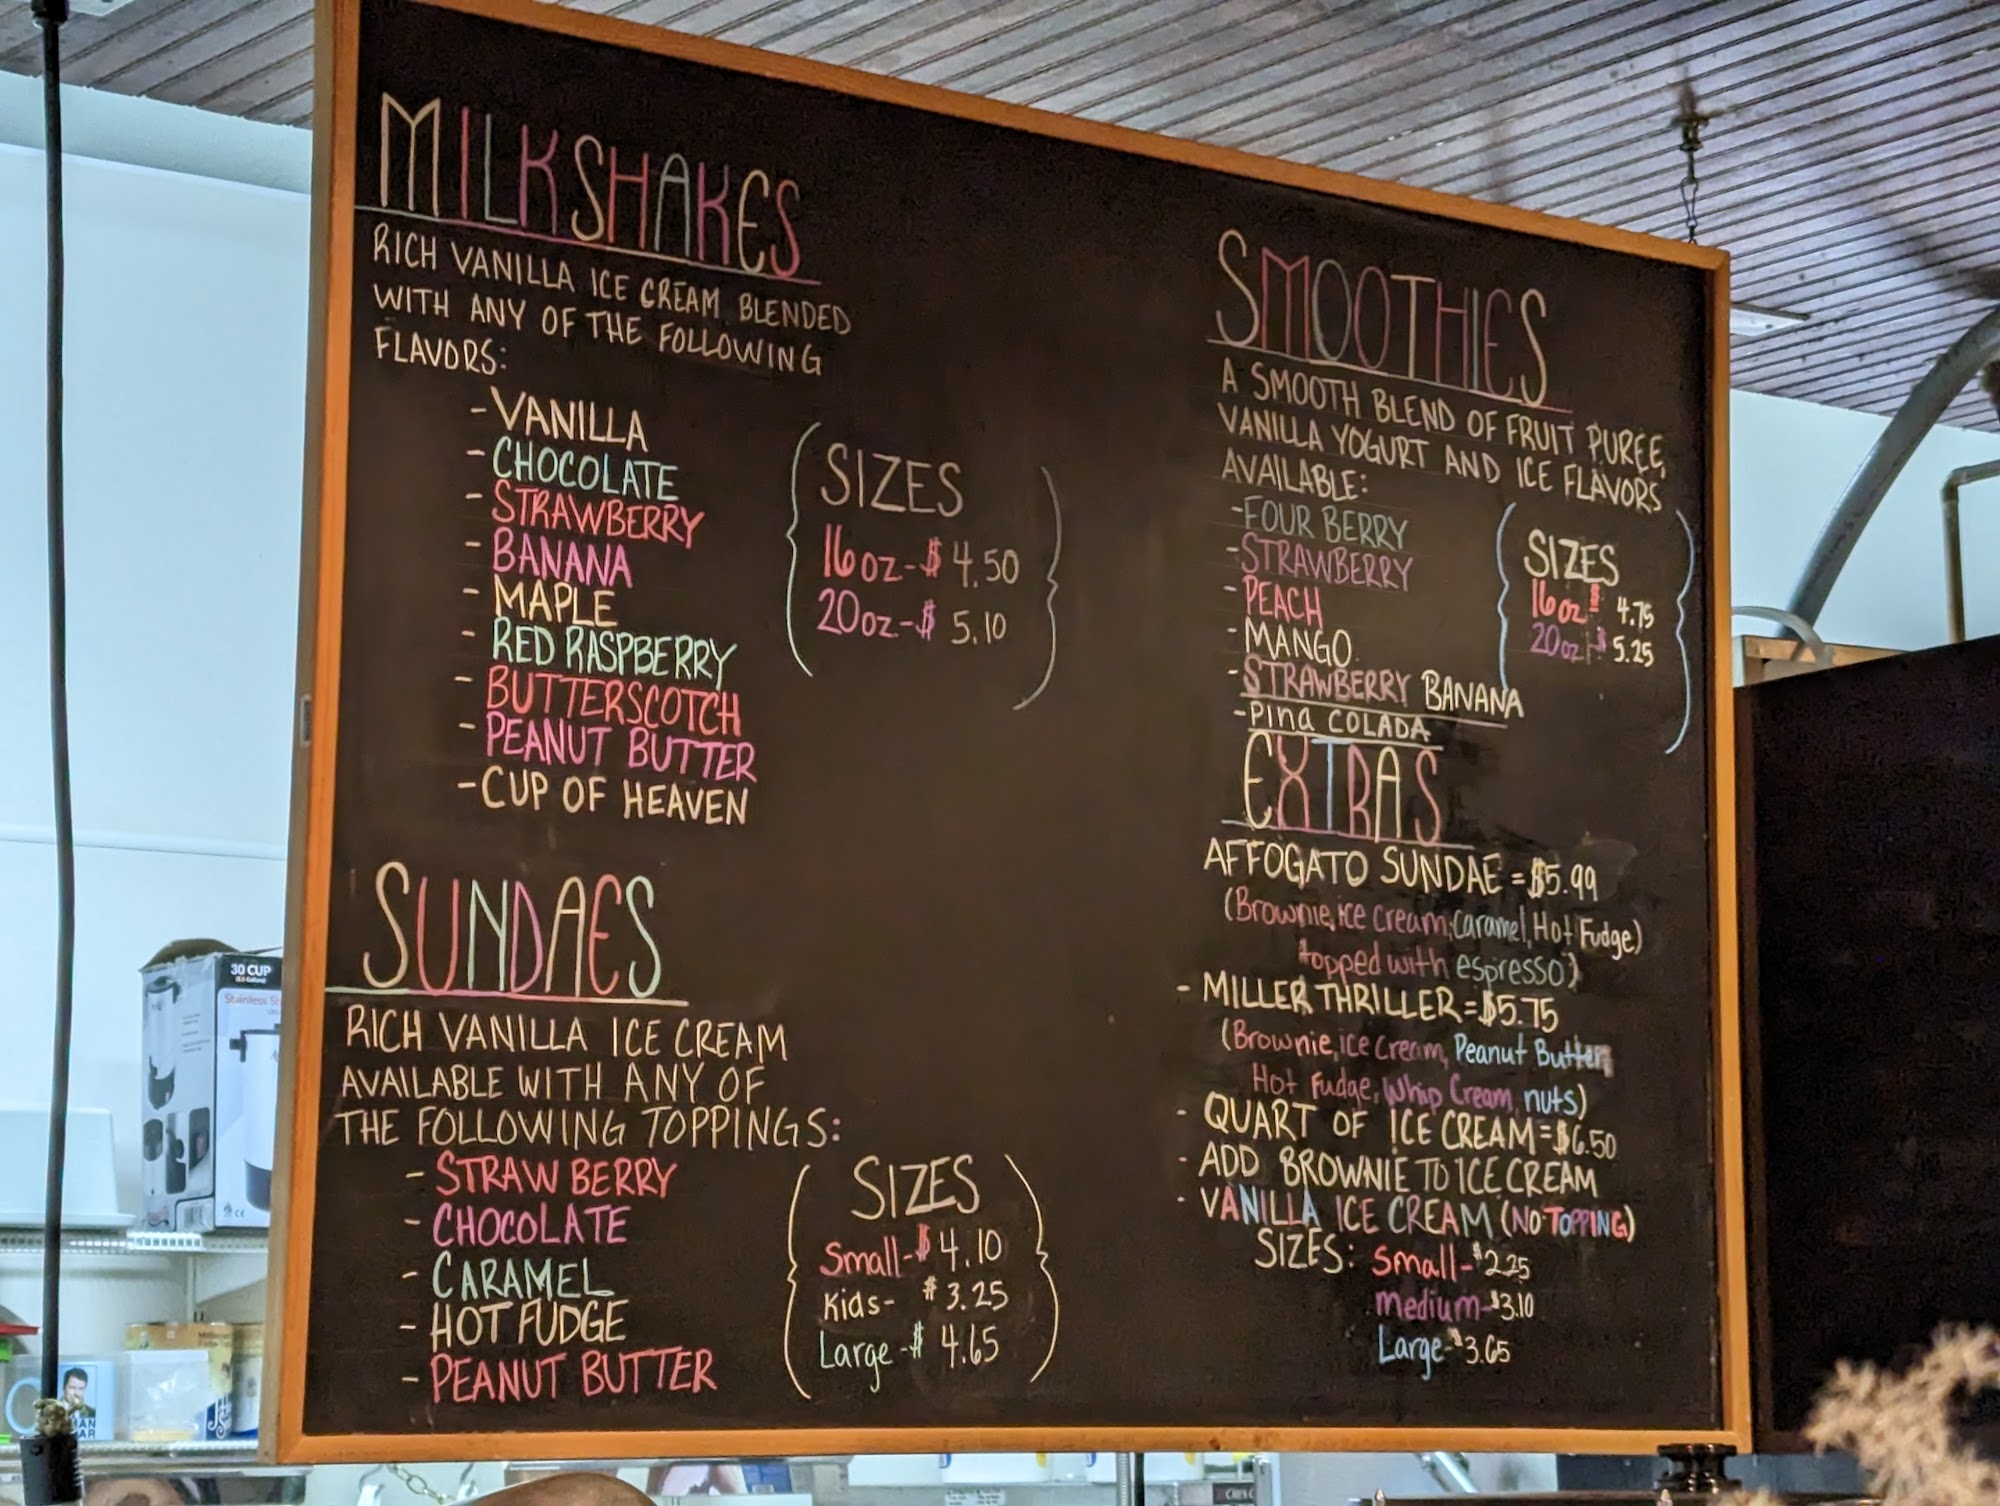 MILKSHAKES
RICH VANILLA ICE CREAM BLENDED
WITH ANY OF THE FOLLOWING
FLAVORS:
- VANILLA
- CHOCOLATE
- STRAWBERRY
- BANANA
- MAPLE
- RED RASPBERRY
- BUTTERSCOTCH
- PEANUT BUTTER
- CUP OF HEAVEN
SIZES
16oz - $ 4.50
20oz - $ 5.10
SUNDAES
RICH VANILLA ICE CREAM
AVAILABLE WITH ANY OF
THE FOLLOWING TOPPINGS:
- STRAWBERRY
- CHOCOLATE
- CARAMEL
- HOT FUDGE
- PEANUT BUTTER
SIZES
Small - $ 4.10
Kids - $ 3.25
Large - $ 4.65
SMOOTHIES
A SMOOTH BLEND OF FRUIT PUREE,
VANILLA YOGURT AND ICE FLAVORS
AVAILABLE:
- FOUR BERRY
- STRAWBERRY
- PEACH
- MANGO
- STRAWBERRY BANANA
- Pina COLADA
SIZES
16oz $ 4.75
20oz - $ 5.25
EXTRAS
AFFOGATO SUNDAE = $5.99
(Brownie, ice cream, caramel, Hot Fudge)
topped with espresso)
- MILLER THRILLER = $5.75
(Brownie, ice cream, Peanut Butter,
Hot Fudge, Whip Cream, nuts)
- QUART OF ICE CREAM = $6.50
- ADD BROWNIE TO ICE CREAM
- VANILLA ICE CREAM (NO TOPPING)
SIZES: Small - $2.25
Medium - $3.10
Large - $3.65
30 CUP
Stainless